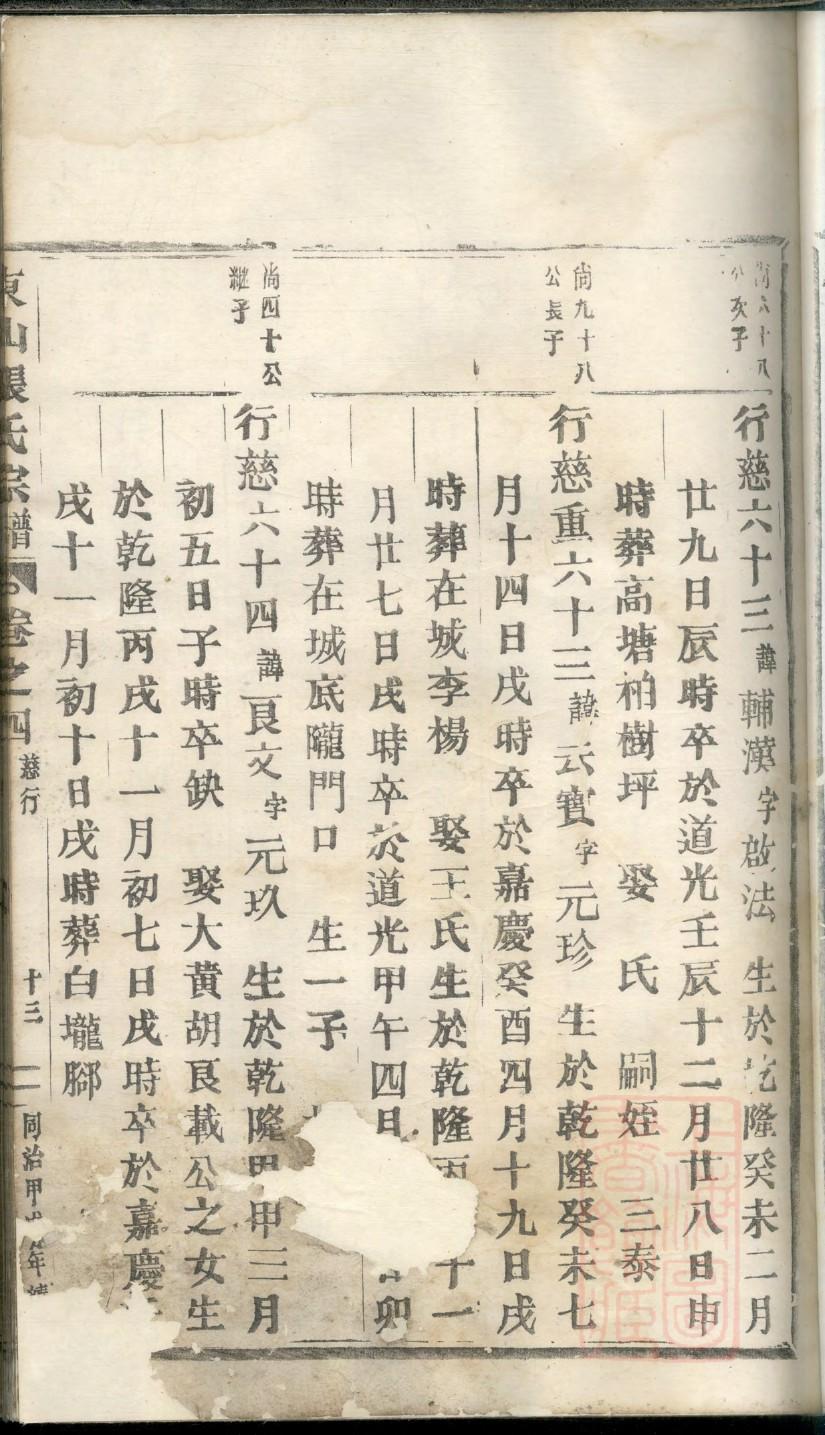 尚六十八
公次子
行慈六十三諱輔漢字啟法　生於乾隆癸未二月
廿九日辰時卒於道光壬辰十二月廿八日申
時葬高塘柏樹坪　娶　氏　嗣姪　三泰
尚九十八
公長子
行慈重六十三諱云寶字元珍　生於乾隆癸未七
月十四日戌時卒於嘉慶癸酉四月十九日戌
時葬在城李楊　娶王氏生於乾隆丙　十一
月廿七日戌時卒於道光甲午四月　卯
時葬在城底隴門口　生一子
尚四十公
繼子
行慈六十四諱良文字元玖　生於乾隆甲申三月
初五日子時卒缺　娶大黄胡良載公之女生
於乾隆丙戌十一月初七日戌時卒於嘉慶
戌十一月初十日戌時葬白壠腳
東山張氏宗譜　卷之四　慈行　十三　同治甲　年